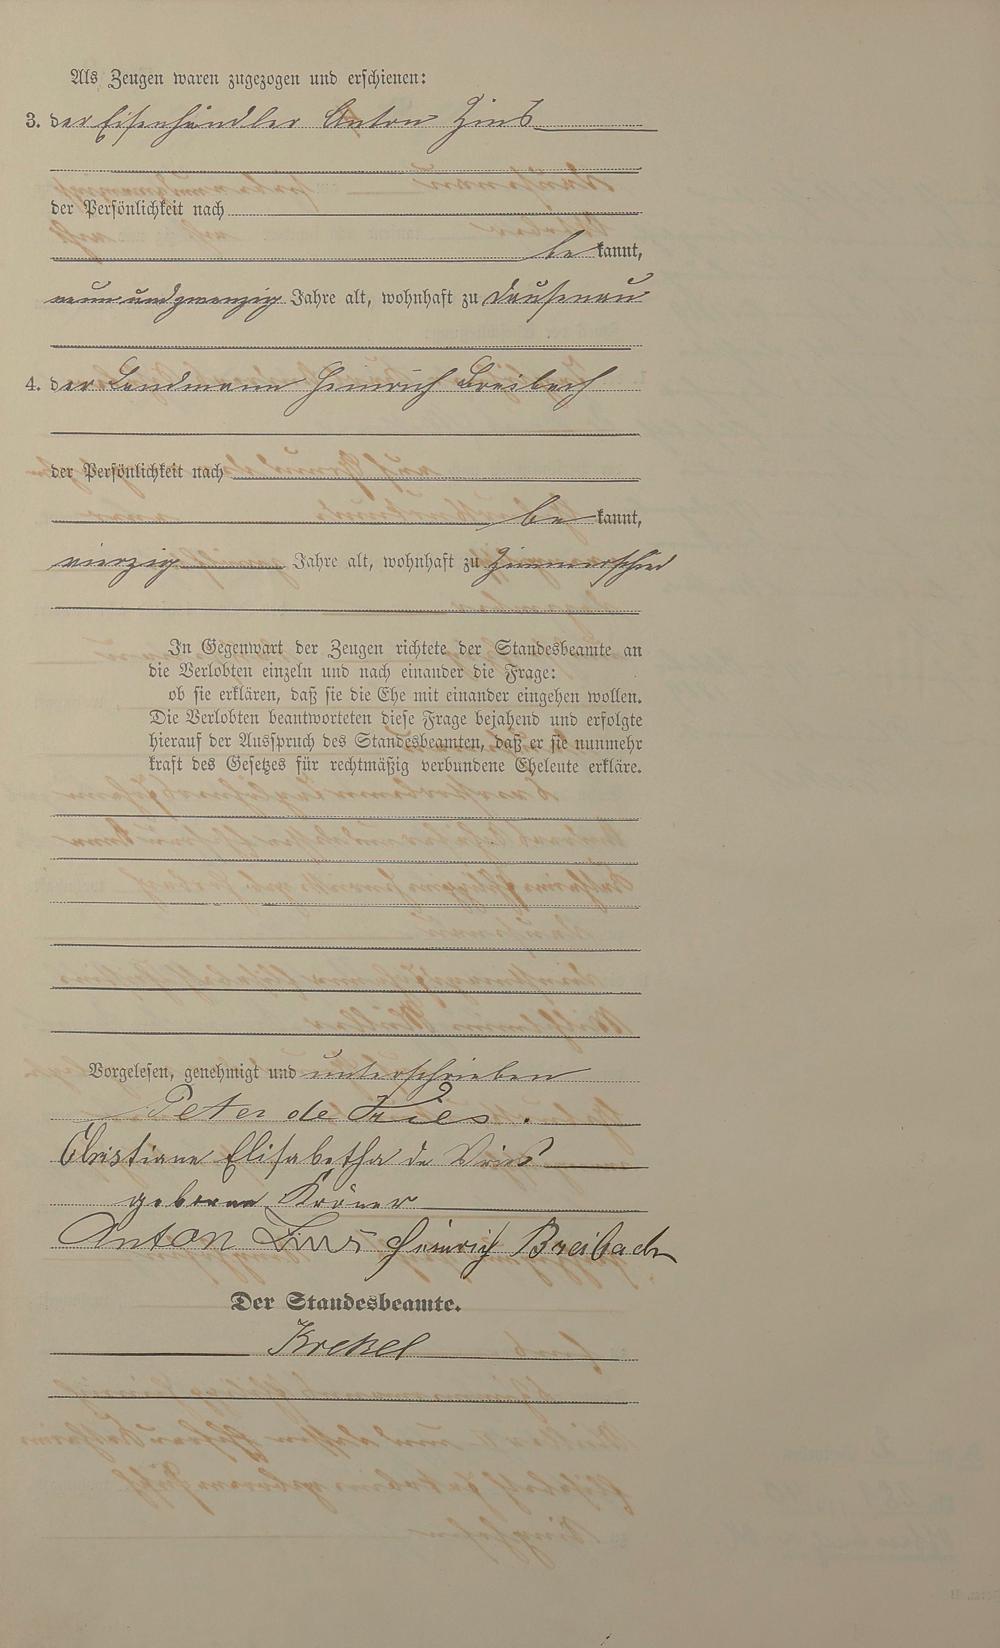 Als Zeugen waren zugezogen und erschienen:
3. der Eisenhändler Anton Zins
der Persönlichkeit nach
bekannt,
neunundzwanzig Jahre alt, wohnhaft zu Dausenau
4. der Landmann Heinrich Breibach
der Persönlichkeit nach
bekannt,
vierzig Jahre alt, wohnhaft zu Zimmerschied
In Gegenwart der Zeugen richtete der Standesbeamte an
die Verlobten einzeln und nach einander die Frage:
ob sie erklären, daß sie die Ehe mit einander eingehen wollen.
Die Verlobten beantworteten diese Frage bejahend und erfolgte
hierauf der Ausspruch des Standesbeamten, daß er sie nunmehr
kraft des Gesetzes für rechtmäßig verbundene Eheleute erkläre.
Vorgelesen, genehmigt und unterschrieben
Peter de Fries.
Christiane Elisabetha de Vries
geborene Kröner
Anton Zins Heinrich Breibach
Der Standesbeamte.
Krekel